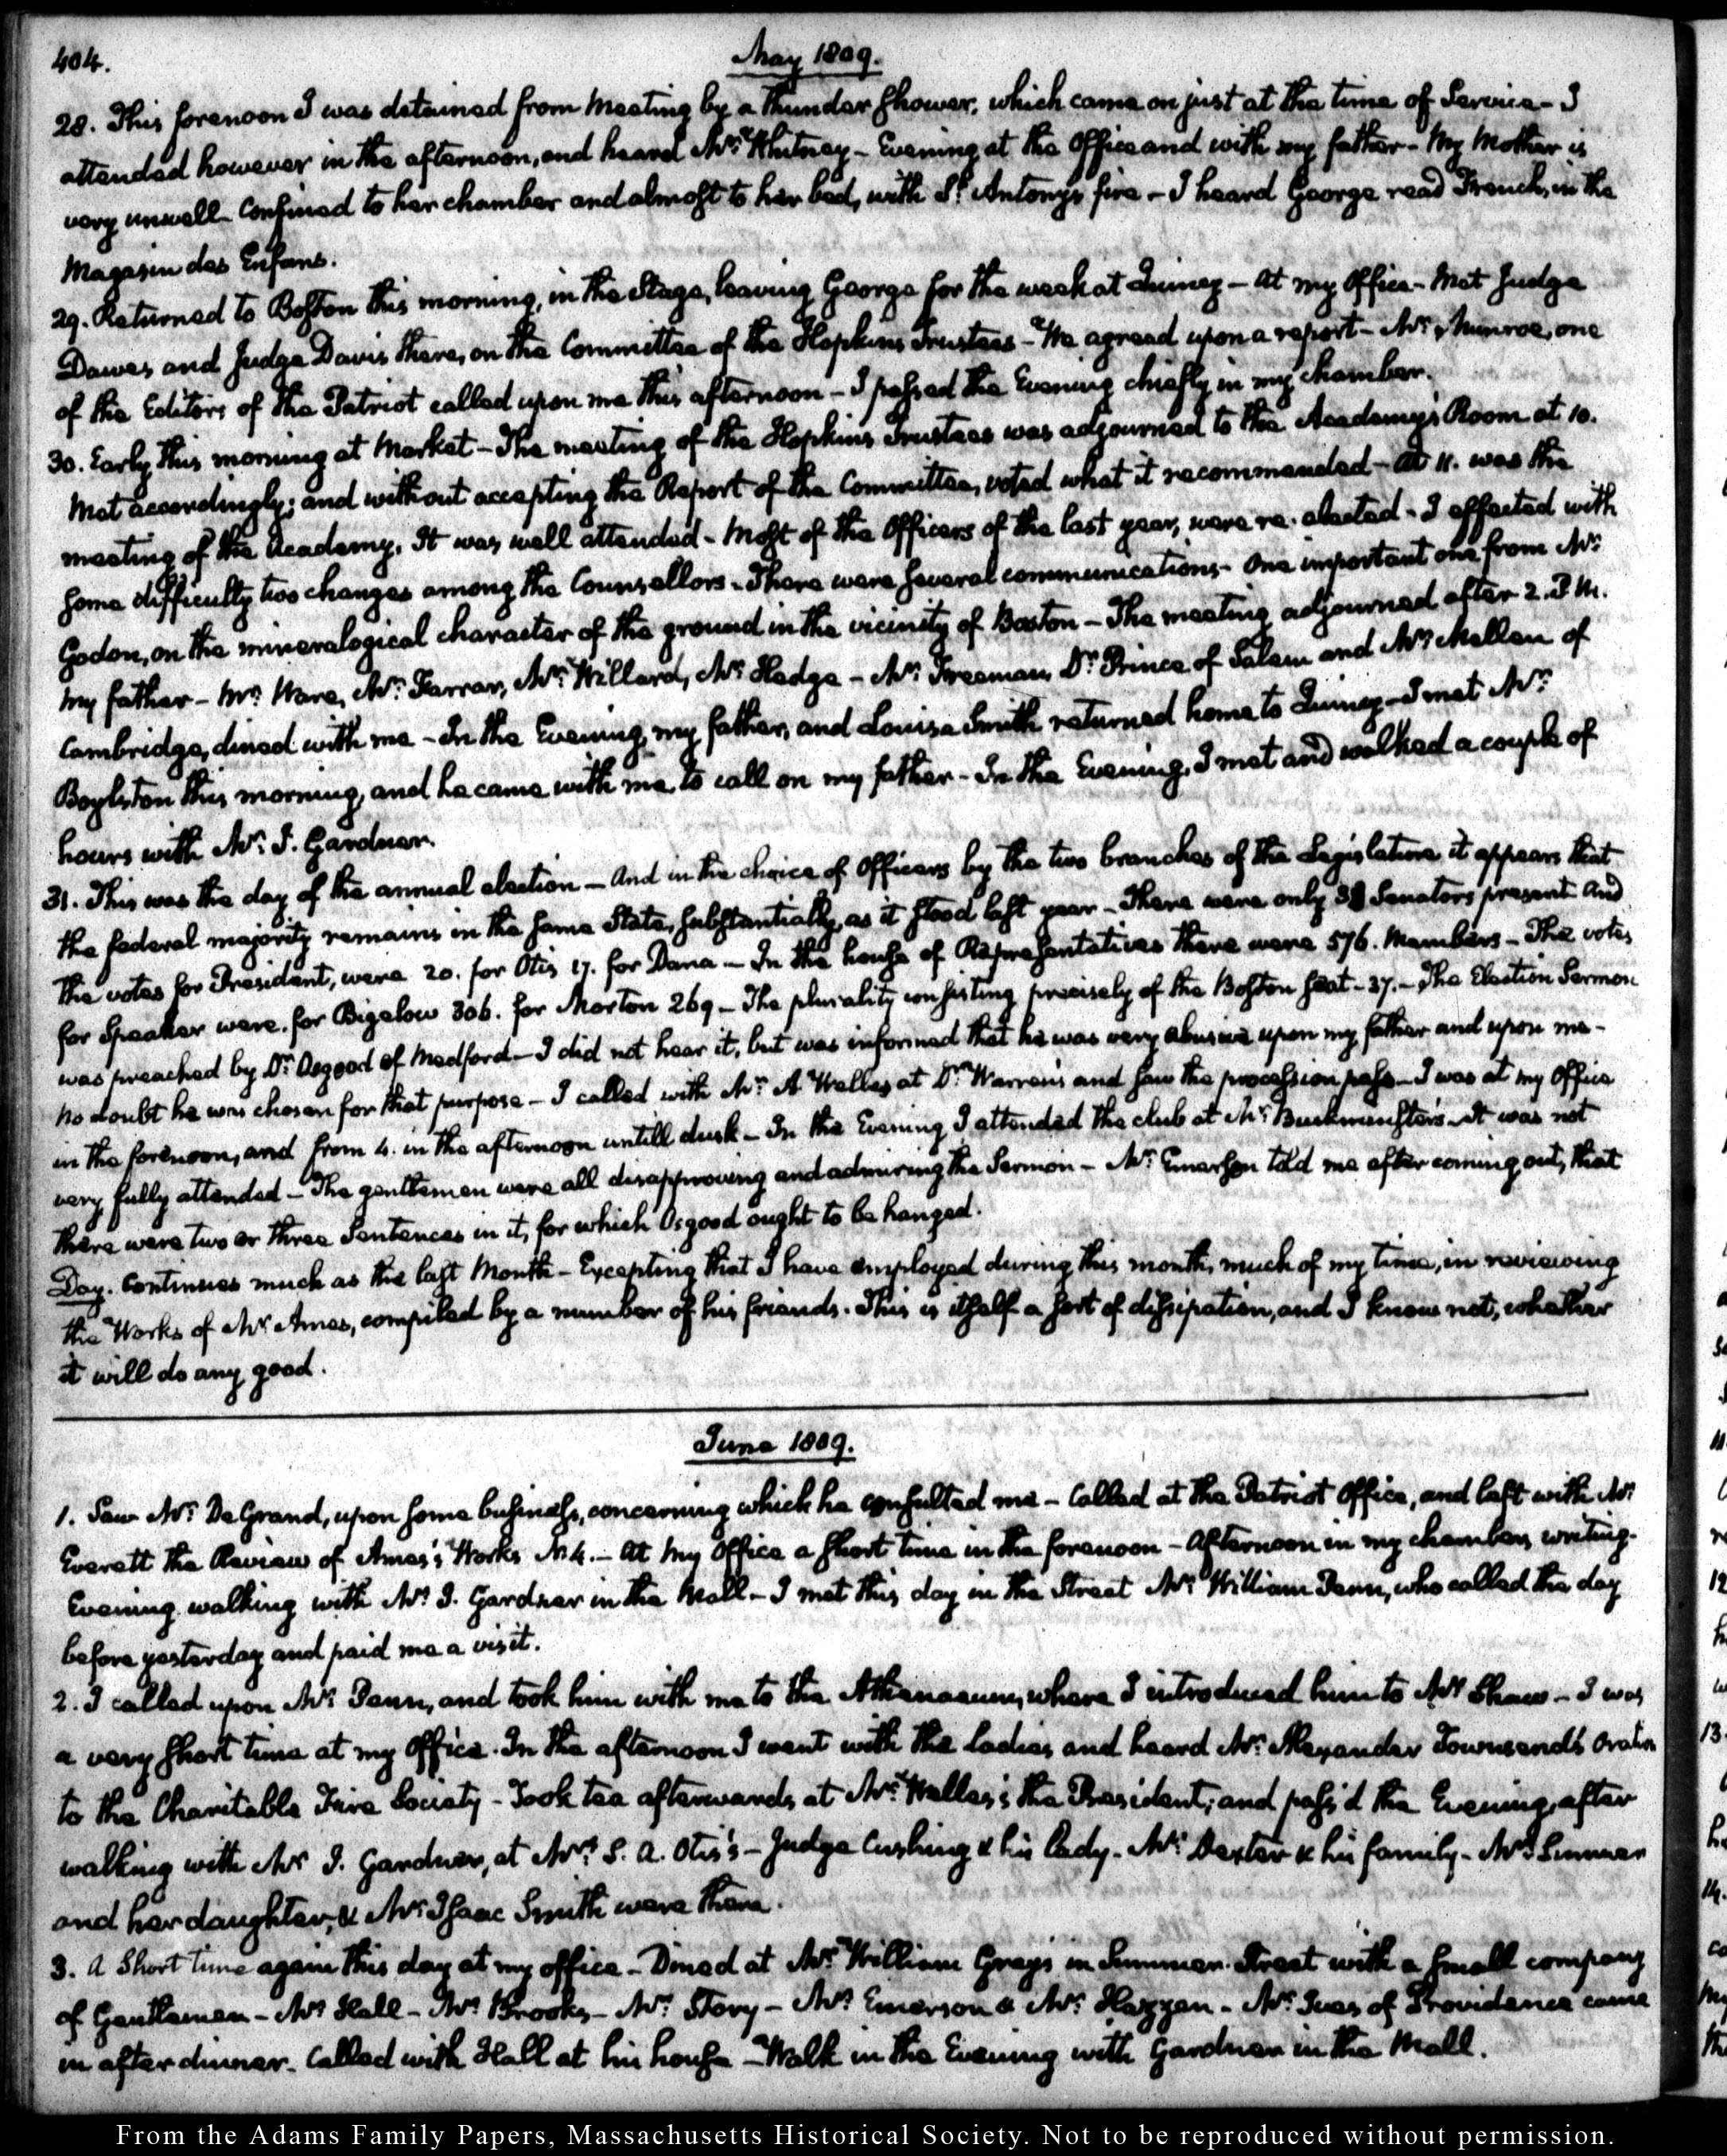 404.
May 1809.
28. This forenoon I was detained from Meeting by a thunder shower, which came on just at the time of Service - I
attended however in the afternoon, and heard Mr. Whitney - Evening at the Office and with my father - My Mother is
very unwell - Confined to her chamber and almost to her bed, with St. Antony's fire - I heard George read French, in the
Magasin des Enfans.
29. Returned to Boston this morning, in the Stage, leaving George for the week at Quincy - At my Office - Met Judge
Dawes and Judge Davis there, on the Committee of the Hopkins Trustees - We agreed upon a report - Mr. Munroe, one
of the Editors of the Patriot called upon me this afternoon - I passed the Evening chiefly in my chamber.
30. Early this morning at Market - The meeting of the Hopkins Trustees was adjourned to the Academy's Room at 10.
Met accordingly; and without accepting the Report of the Committee, voted what it recommended - At 11. was the
meeting of the Academy. It was well attended - Most of the Officers of the last year, were re-elected - I effected with
some difficulty two changes among the Counsellors - There were several communications - One important one from Mr.
Godon, on the mineralogical character of the ground in the vicinity of Boston - The meeting adjourned after 2. P.M.
My father - Mr. Ware, Mr. Farrar, Mr. Willard, Mr. Hedge - Mr. Freeman, Dr. Prince of Salem and Mr. Mellen of
Cambridge, dined with me - In the Evening, my father, and Louisa Smith returned home to Quincy - I met Mr.
Boylston this morning, and he came with me, to call on my father - In the Evening, I met and walked a couple of
hours with Mr. J. Gardner.
31. This was the day of the annual election - And in the choice of Officers by the two branches of the Legislature it appears that
the federal majority remains in the same State, substantially, as it stood last year - There were only 38 Senators present and
the votes for President, were 20. for Otis 17. for Dana - In the house of Representatives there were 576. Members - The votes
for Speaker were. for Bigelow 306. for Morton 269 - The plurality consisting precisely of the Boston seat - 37. - The Election Sermon
was preached by Dr. Osgood of Medford - I did not hear it, but was informed that he was very abusive upon my father and upon me -
No doubt he was chosen for that purpose - I called with Mr. A Welles at Dr. Warren's and saw the procession pass - I was at my Office
in the forenoon, and from 4. in the afternoon untill dusk - In the Evening I attended the club at Mr. Buckminster's - It was not
very fully attended - The gentlemen were all disapproving and admiring the Sermon - Mr. Emerson told me after coming out, that
there were two or three Sentences in it, for which Osgood ought to be hanged.
Day. Continues much as the last Month - Excepting that I have employed during this month, much of my time, in reviewing
the Works of Mr. Ames, compiled by a number of his friends. This is itself a sort of dissipation, and I know not, whether
it will do any good.
June 1809.
1. Saw Mr. De Grand, upon some business, concerning which he consulted me - Called at the Patriot Office, and left with Mr.
Everett the Review of Ames's Works N. 4. - At my Office a short time in the forenoon - Afternoon in my chamber, writing -
Evening walking with Mr. J. Gardner in the Mall - I met this day in the Street Mr. William Penn, who called the day
before yesterday and paid me a visit.
2. I called upon Mr. Penn, and took him with me to the Athenaeum, where I introduced him to Mr. Shaw - I was
a very short time at my Office. In the afternoon I went with the ladies and heard Mr. Alexander Townsend's Oration
to the Charitable Fire Society - Took tea afterwards at Mr. Welles's the President; and pass'd the Evening, after
walking with Mr. J. Gardner, at Mr. S. A. Otis's - Judge Cushing & his Lady - Mr. Dexter & his family - Mrs. Sumner
and her daughter, & Mr. Isaac Smith were there.
3. A Short time again this day at my office - Dined at Mr. William Gray's in Summer Street with a small company
of Gentlemen - Mr. Hall - Mr. Brooks - Mr. Story - Mr. Emerson & Mr. Hazzen - Mr. Ives of Providence came
in after dinner - Called with Hall at his house - Walk in the Evening with Gardner in the Mall.
From the Adams Family Papers, Massachusetts Historical Society. Not to be reproduced without permission.